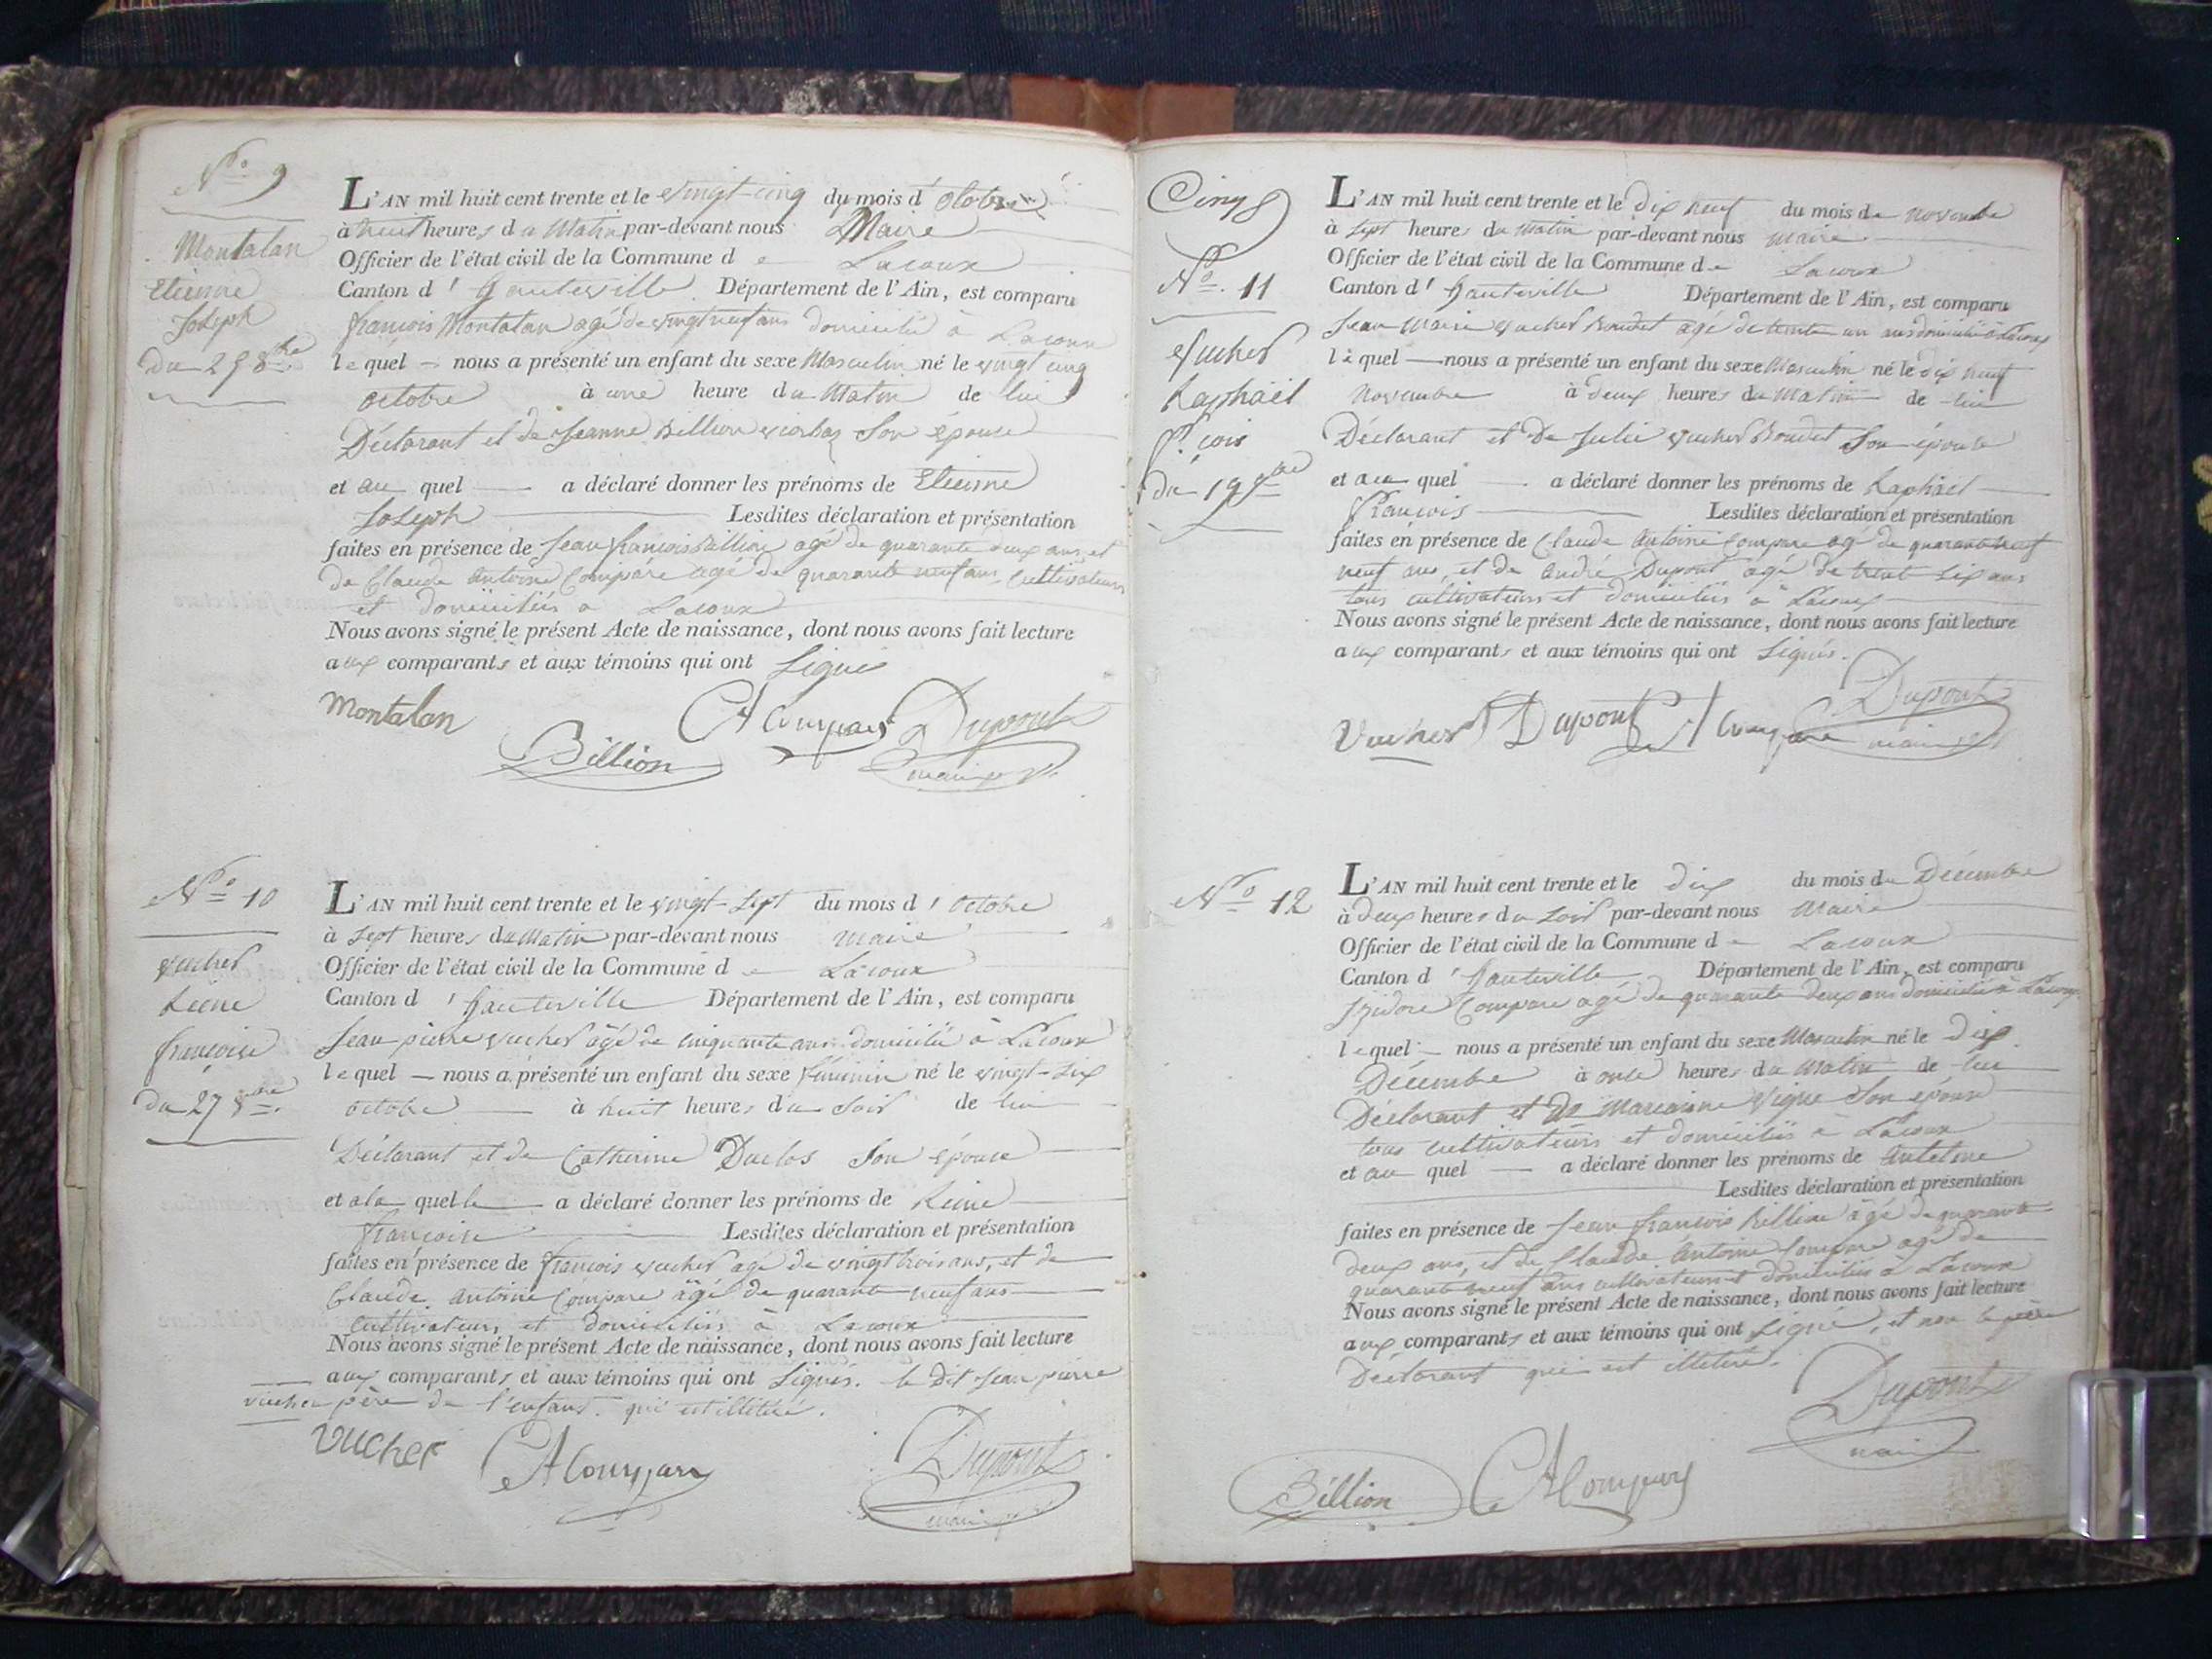 N.o 9
Montalan
Etienne
Joseph
du 25 8bre
L'AN mil huit cent trente et le vingt-cinq du mois d'octobre
à huit heures du Matin par-devant nous Maire
Officier de l'état civil de la Commune de Lacoux
Canton d'hauteville Département de l'Ain, est comparu
françois Montalan agé de vingt neuf ans domicilié à Lacoux
lequel nous a présenté un enfant du sexe Masculin né le vingt cinq
octobre à une heure du Matin de lui
Déclarant et de Jeanne Billion son épouse
et au quel a déclaré donner les prénoms de Etienne
Joseph Lesdites déclaration et présentation
faites en présence de Jean françois Billion agé de quarante deux ans et
de Claude antoine Compare agé de quarante neuf ans cultivateurs
et domiciliés a Lacoux
Nous avons signé le présent Acte de naissance, dont nous avons fait lecture
aux comparants et aux témoins qui ont Signés
Montalan
CA Compare Dupont
Billion maire
N.o 10
vucher
Reine
françoise
du 27 8bre
L'AN mil huit cent trente et le vingt-sept du mois d'octobre
à sept heures du Matin par-devant nous Maire
Officier de l'état civil de la Commune de Lacoux
Canton d'hauteville Département de l'Ain, est comparu
Jean pierre vucher âgé de cinquante ans domicilié à Lacoux
lequel nous a présenté un enfant du sexe féminin né le vingt-six
octobre à huit heures du soir de lui
Déclarant et de Catherine Duclos son épouse
et a la quelle a déclaré donner les prénoms de Reine
françoise Lesdites déclaration et présentation
faites en présence de françois vucher agé de vingt trois ans, et de
Claude antoine Compare âgé de quarante neuf ans
cultivateurs et domiciliés à Lacoux
Nous avons signé le présent Acte de naissance, dont nous avons fait lecture
aux comparants et aux témoins qui ont Signés. le dit Jean pierre
vucher père de l'enfant. qui est illitéré.
Vucher CA Compare Dupont
maire
Cinq
N.o 11
vucher
Raphaël
f.cois
du 19 9bre
L'AN mil huit cent trente et le dix neuf du mois de novembre
à sept heures du Matin par-devant nous Maire
Officier de l'état civil de la Commune de Lacoux
Canton d'hauteville Département de l'Ain, est comparu
Jean Marie vucher Boudet agé de trente un ans domicilié à Lacoux
lequel nous a présenté un enfant du sexe Masculin né le dix neuf
Novembre à deux heures du Matin de lui
Déclarant et De Julie vucher Boudet son épouse
et au quel a déclaré donner les prénoms de Raphaël
François Lesdites déclaration et présentation
faites en présence de Claude Antoine Compare agé de quarante neuf
neuf ans, et de André Dupont agé de trente six ans
tous cultivateurs et domiciliés à Lacoux
Nous avons signé le présent Acte de naissance, dont nous avons fait lecture
aux comparants et aux témoins qui ont Signés.
Vucher Dupont CA Compare Dupont
maire
N.o 12
L'AN mil huit cent trente et le dix du mois de Décembre
à deux heures du soir par-devant nous Maire
Officier de l'état civil de la Commune de Lacoux
Canton d'hauteville Département de l'Ain, est comparu
Izidore Compare agé de quarante deux ans domicilié à Lacoux
lequel nous a présenté un enfant du sexe Masculin né le dix
Décembre à onze heures du Matin de lui
Déclarant et De Marianne Vigne son épouse
tous cultivateurs et domiciliés à Lacoux
et au quel a déclaré donner les prénoms de Antelme
Lesdites déclaration et présentation
faites en présence de Jean françois Billion agé de quarante
deux ans, et de Claude Antoine Compare agé de
quarante neuf ans cultivateurs et domiciliés à Lacoux
Nous avons signé le présent Acte de naissance, dont nous avons fait lecture
aux comparants et aux témoins qui ont Signé, et non le père
Déclarant qui est illitéré.
Dupont
maire
Billion CA Compare